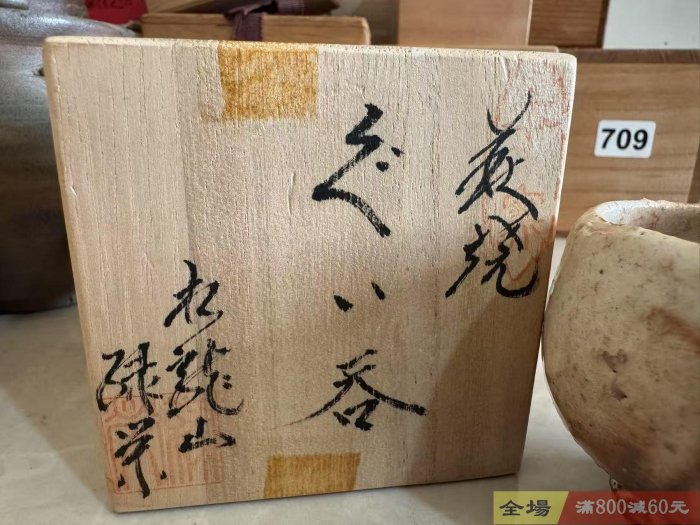 萩焼
ぐい呑
松龍山
緑栄
709
全場
滿800減60元